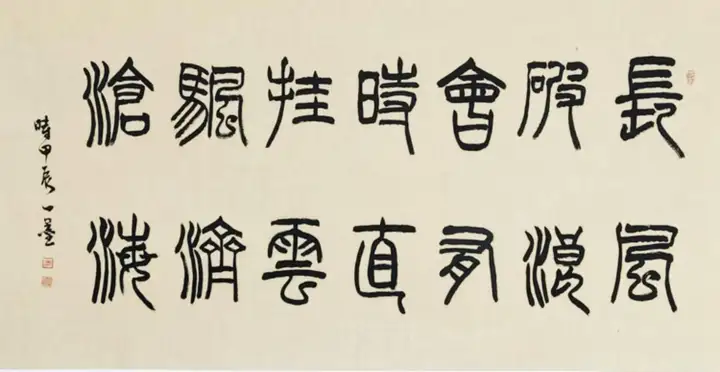 長風
破浪
會有
時直
挂雲
颿濟
滄海
時甲辰